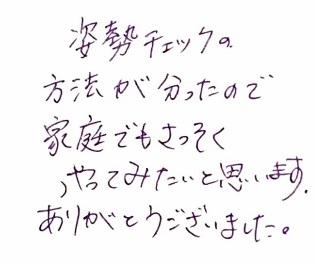 姿勢チェックの
方法が分ったので
家庭でもさっそく
やってみたいと思います.
ありがとうございました。